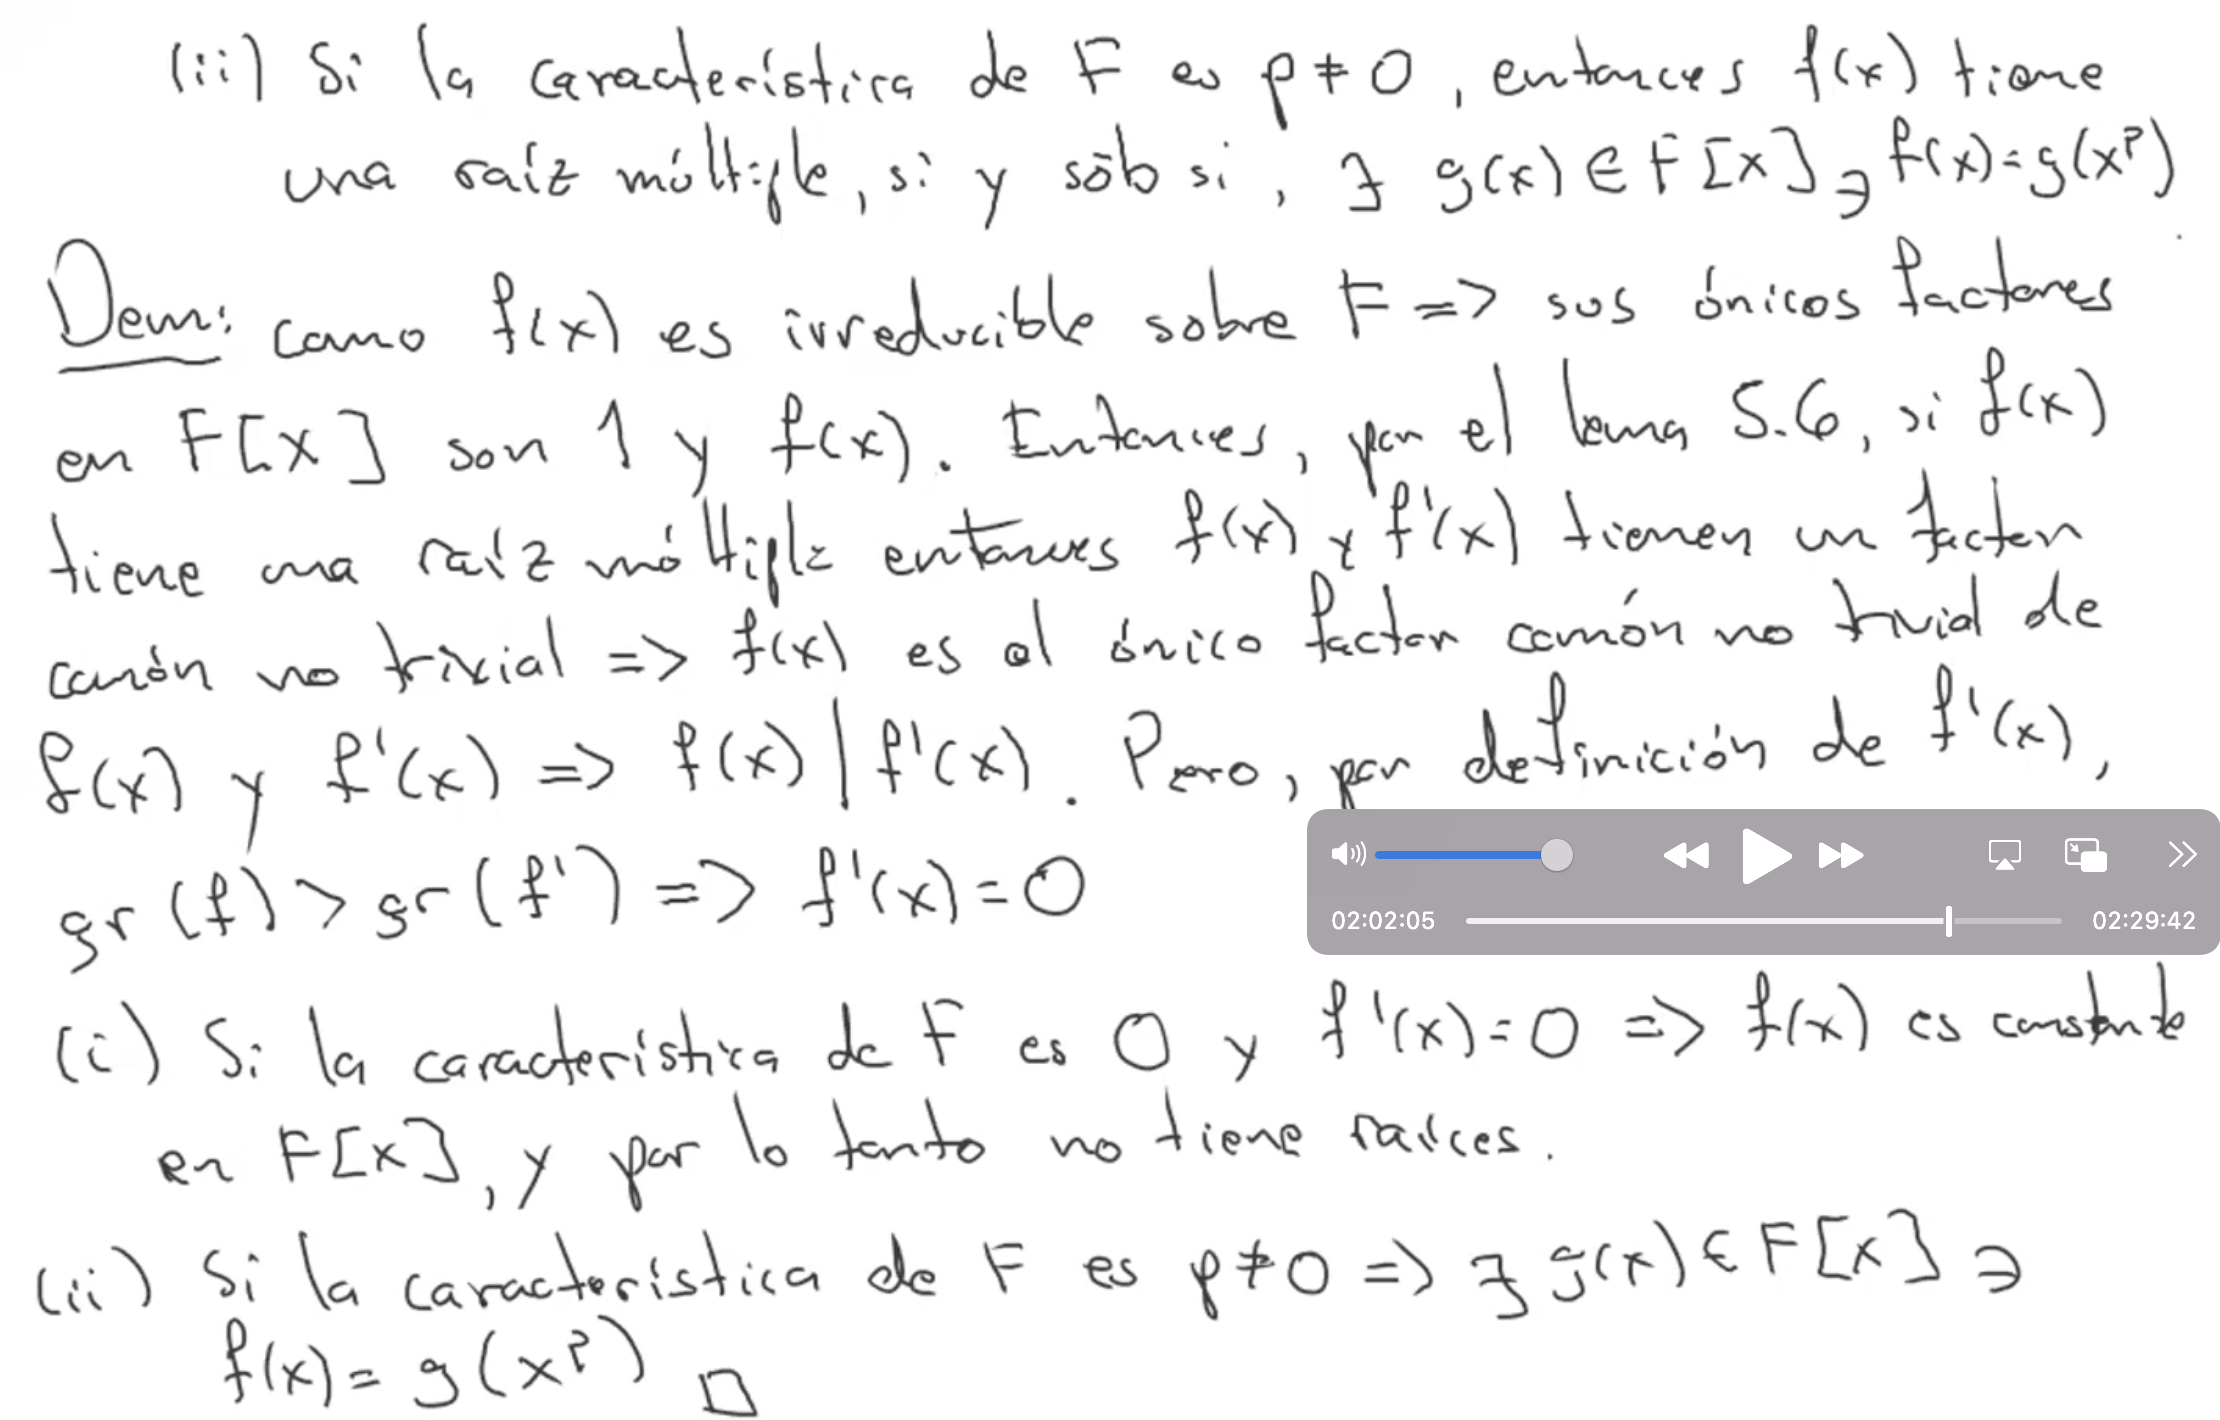 (ii) Si la característica de F es p ≠ 0, entonces f(x) tiene
una raíz múltiple, si y sólo si, ∃ g(x) ∈ F[x] ∋ f(x) = g(x^p)
Dem: como f(x) es irreducible sobre F => sus únicos factores
en F[x] son 1 y f(x). Entonces, por el lema 5.6, si f(x)
tiene una raíz múltiple entonces f(x) y f'(x) tienen un factor
común no trivial => f(x) es el único factor común no trivial de
f(x) y f'(x) => f(x) | f'(x). Pero, por definición de f'(x),
gr(f) > gr(f') => f'(x) = 0
02:02:05 02:29:42
(i) Si la característica de F es 0 y f'(x) = 0 => f(x) es constante
en F[x], y por lo tanto no tiene raíces.
(ii) Si la característica de F es p ≠ 0 => ∃ g(x) ∈ F[x] ∋
f(x) = g(x^p) □